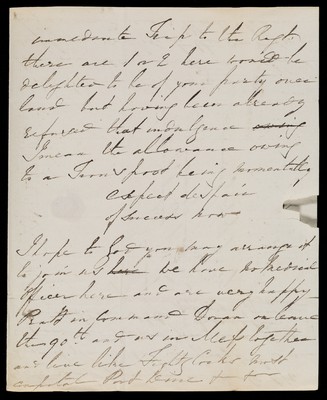 immediate Trip to the Regt
there are 1 or 2 here would be
delighted to be of your party over
land but having been already
refused that indulgence owing
I mean the allowance owing
to a Transport being momentarily
expected despair
of success now
I hope to God you may arrange it
to join us here we have no medical
Officer here and are very happy
Pratt in command Doran on leave
the 90th and us in Mess together
and live like Fighting Cocks most
capital Port Wine &